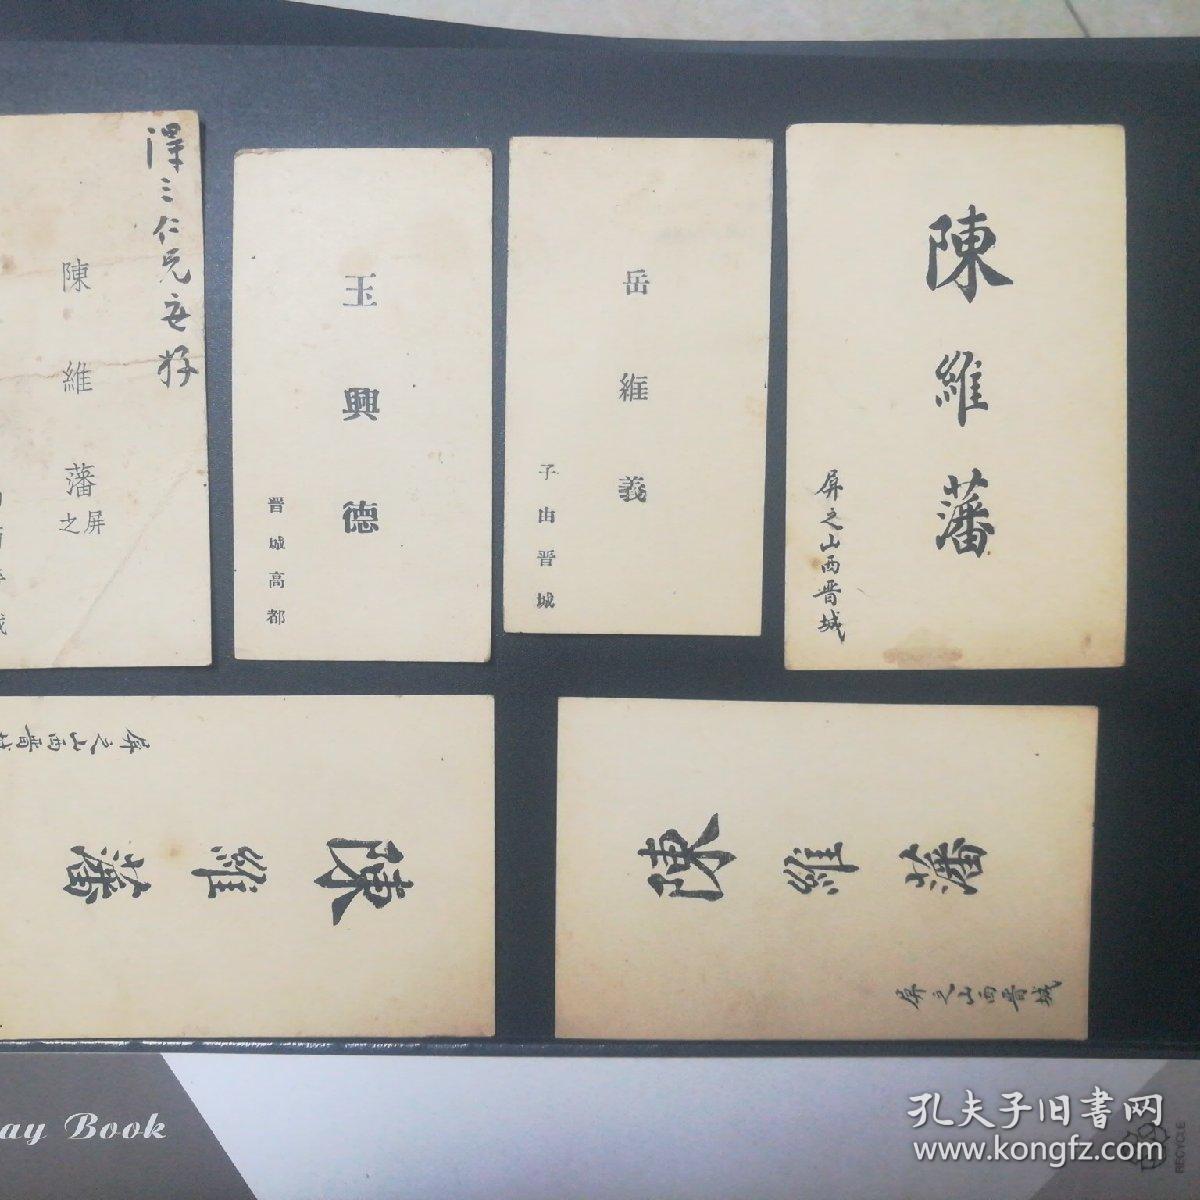 澤三仁兄
陳維藩
屏之
玉興德
晉城高都
岳維義
子由晉城
陳維藩
屏之山西晋城
陳維藩
屏之山西晋
陳維藩
屏之山西晋城
ay Book
孔夫子旧书网
www.kongfz.com
RECYCLE